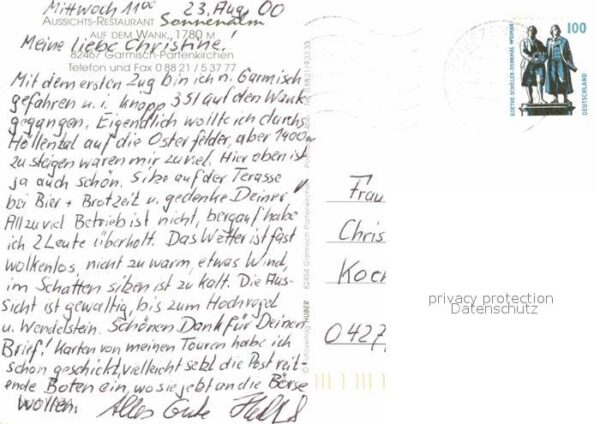 Mittwoch 11⁰⁰ 23. Aug. 00
AUSSICHTS-RESTAURANT Sonnenalm
AUF DEM WANK, 1780 M
Meine liebe Christine!
82467 Garmisch-Partenkirchen
Telefon und Fax 0 88 21 / 5 37 77
Mit dem ersten Zug bin ich n. Garmisch
gefahren u. i. knapp 3 St auf den Wank
gegangen. Eigendlich wollte ich durchs
Höllental auf die Osterfelder, aber 1400m
zu steigen waren mir zu viel. Hier oben ist
ja auch schön. Sitze auf der Terasse
bei Bier + Brotzeit u. gedenke Deiner,
Allzu viel Betrieb ist nicht, bergauf habe
ich 2 Leute überholt. Das Wetter ist fast
wolkenlos, nicht zu warm, etwas Wind,
im Schatten sitzen ist zu kalt. Die Aus-
sicht ist gewaltig, bis zum Hochvogel
u. Wendelstein. Schönen Dank für Deinen
Brief! Karten von meinen Touren habe ich
schon geschickt, vielleicht setzt die Post reit-
ende Boten ein, wo sie jetzt an die Börse
wollen. Alles Gute
HUBER
82464 Garmisch-Partenkirchen
100
GOETHE-SCHILLER-DENKMAL WEIMAR
DEUTSCHLAND
Frau
Chris
Koch
0427
privacy protection
Datenschutz